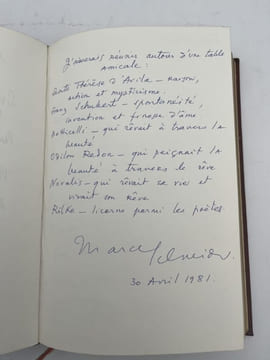 J'aimerais réunir autour d'une table
amicale :
Sainte Thérèse d'Avila – raison,
action et mysticisme.
Franz Schubert – spontanéité,
invention et finesse d'âme
Botticelli – qui rêvait à travers la
beauté
Odilon Redon – qui peignait la
beauté à travers le rêve
Novalis – qui rêvait sa vie et
vivait son rêve
Rilke – licorne parmi les poètes.
Marcel Schneider.
30 Avril 1981.